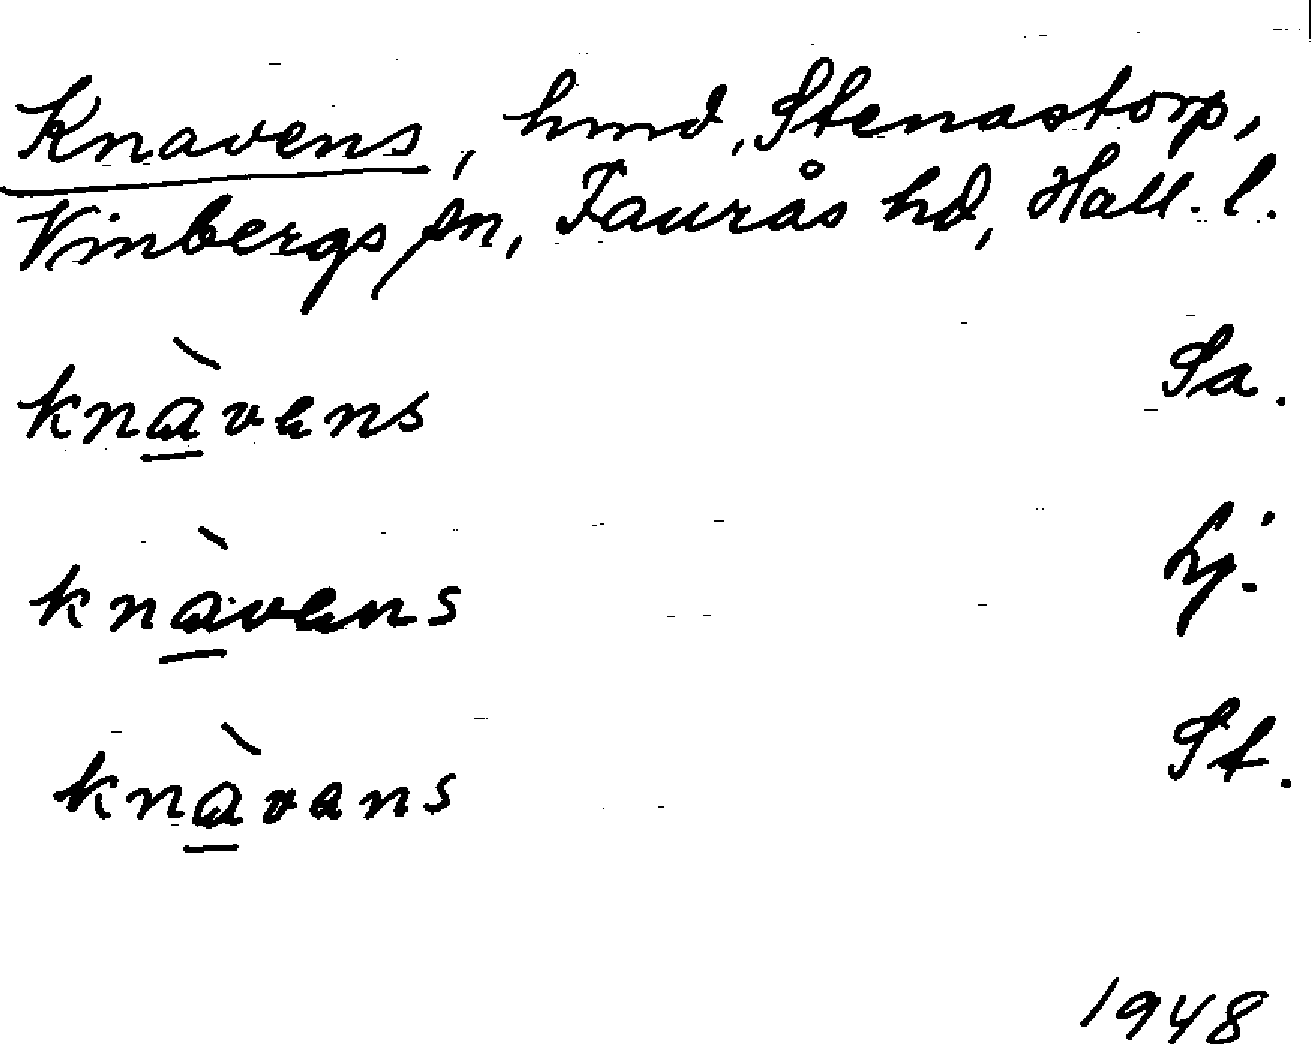 Knavens, hmd, Stenastorp,
Vinbergs sn, Faurås hd, Hall. l.
knàvens Sa.
knàvens Lj.
knàvans St.
1948